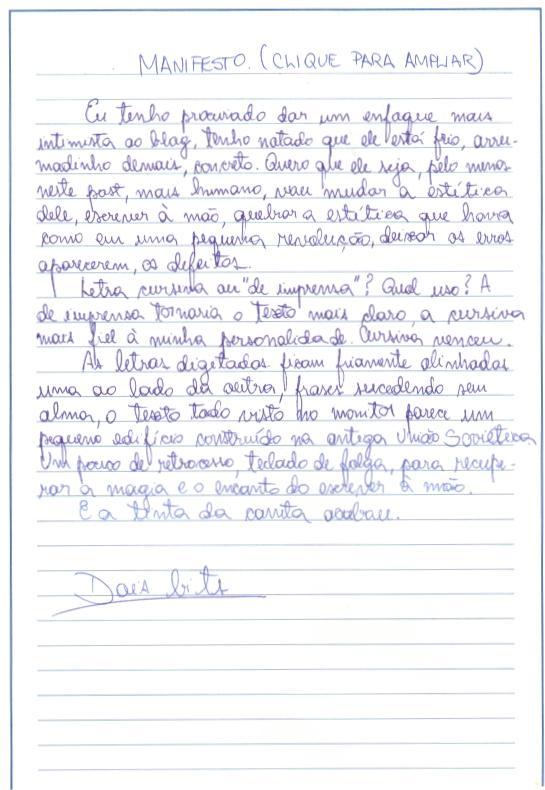 MANIFESTO. (CLIQUE PARA AMPLIAR)
Eu tenho procurado dar um enfaque mais
intimista ao blog, tenho notado que ele está frio, arru-
madinho demais, concreto. Quero que ele seja, pelo menos
neste post, mais humano, vou mudar a estética
dele, escrever à mão, quebrar a estética que havia
como em uma pequena revolução, deixar os erros
aparecerem, os defeitos.
Letra cursiva ou "de imprensa"? Qual uso? A
de imprensa tornaria o texto mais claro, a cursiva
mais fiel à minha personalidade. Cursiva venceu.
As letras digitadas ficam friamente alinhadas
uma ao lado da outra, frases sucedendo sem
alma, o texto todo visto no monitor parece um
pequeno edifício construído na antiga União Soviética.
Um pouco de retrocesso, teclado de folga, para recupe-
rar a magia e o encanto do escrever à mão.
E a tinta da caneta acabou.
Dois bits